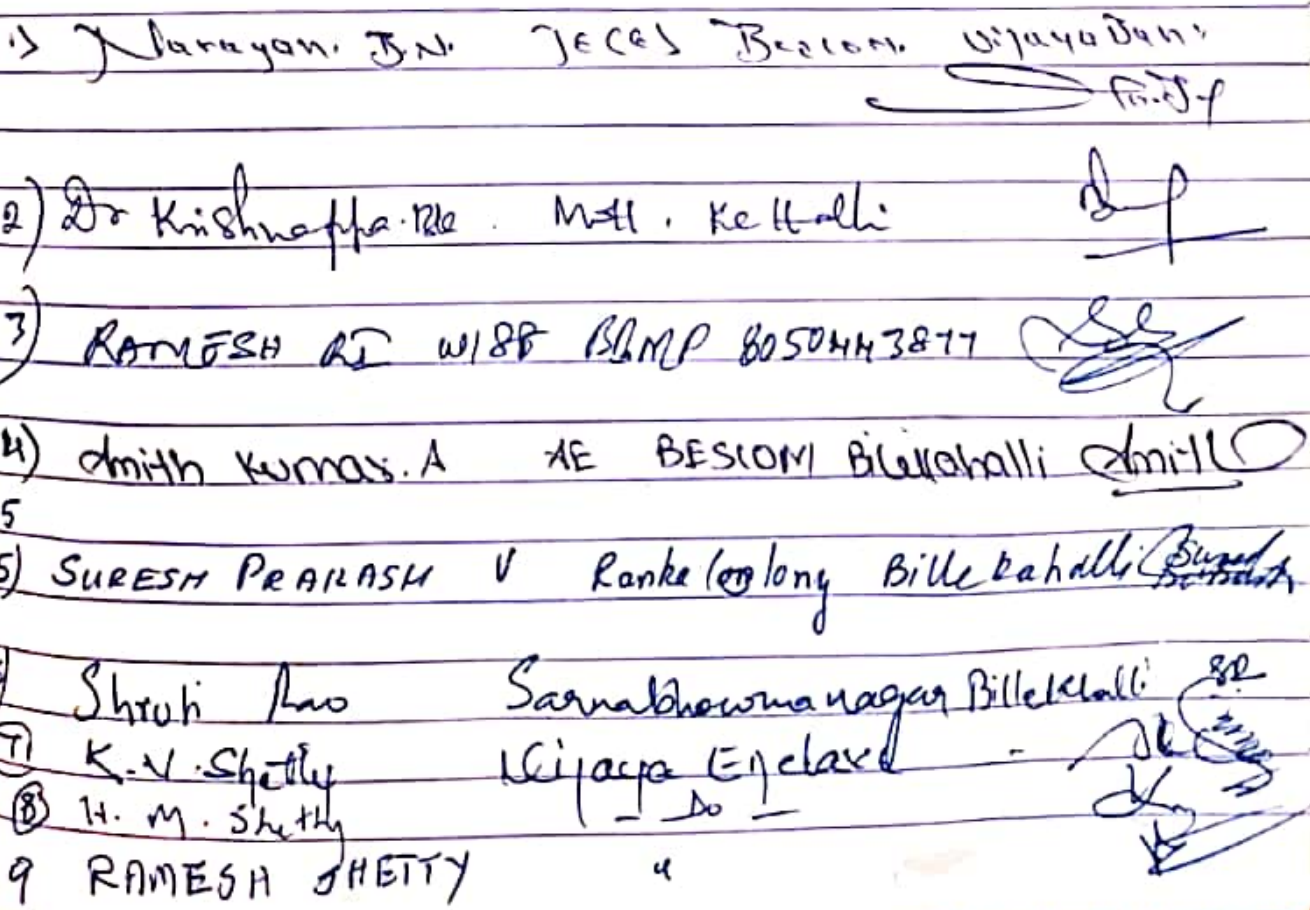 1) Narayan. B.N. JE(E) Bescom. Vijaya
2) Dr Krishnappa. M H. Kettalli
3) RAMESH RI W188 BBMP 8050443877
4) Amith Kumar. A AE BESCOM Bilekahalli Amith
5
5) SURESH PRAKASH V Ranka Colony Billekahalli
Shruti Rao Sarvabhowmanagar Billeklalli SR
7) K.V. Shetty Vijaya Enclave -
8) H. M. Shetty - Do -
9 RAMESH SHETTY "